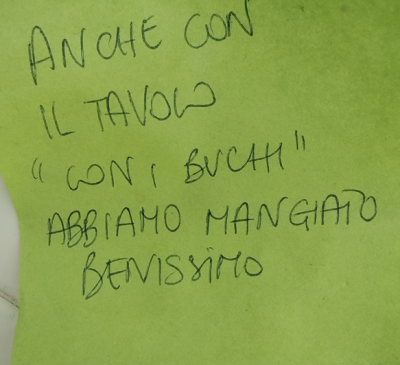 ANCHE CON
IL TAVOLO
"CON I BUCHI"
ABBIAMO MANGIATO
BENISSIMO